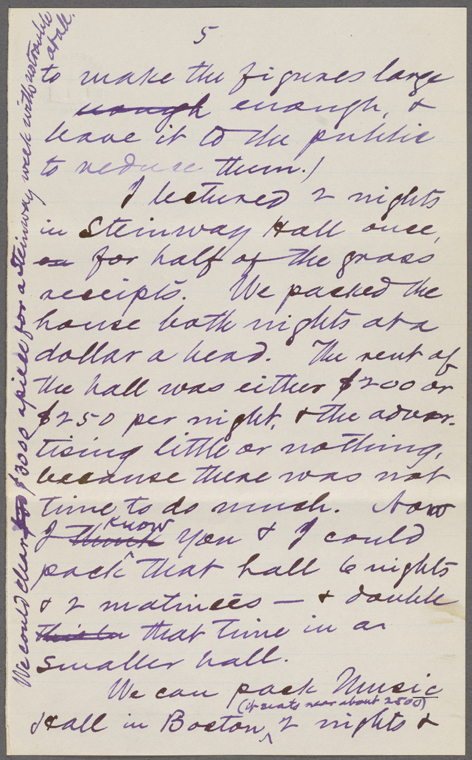 5
to make the figures large
enough enough, &
leave it to the public
to reduce them.)
I lectured 2 nights
in Steinway Hall once,
for half of the gross
receipts. We packed the
house both nights at a
dollar a head. The rent of
the hall was either $200 or
$250 per night, & the adver-
tising little or nothing,
because there was not
time to do much. Now
I think know you & I could
pack that hall 6 nights
& 2 matinées — & double
that time in a
smaller hall.
We can pack Music
Hall in Boston (it seats near about 2500), 2 nights &
We could clear $3000 apiece for a Steinway week with no trouble
at all.